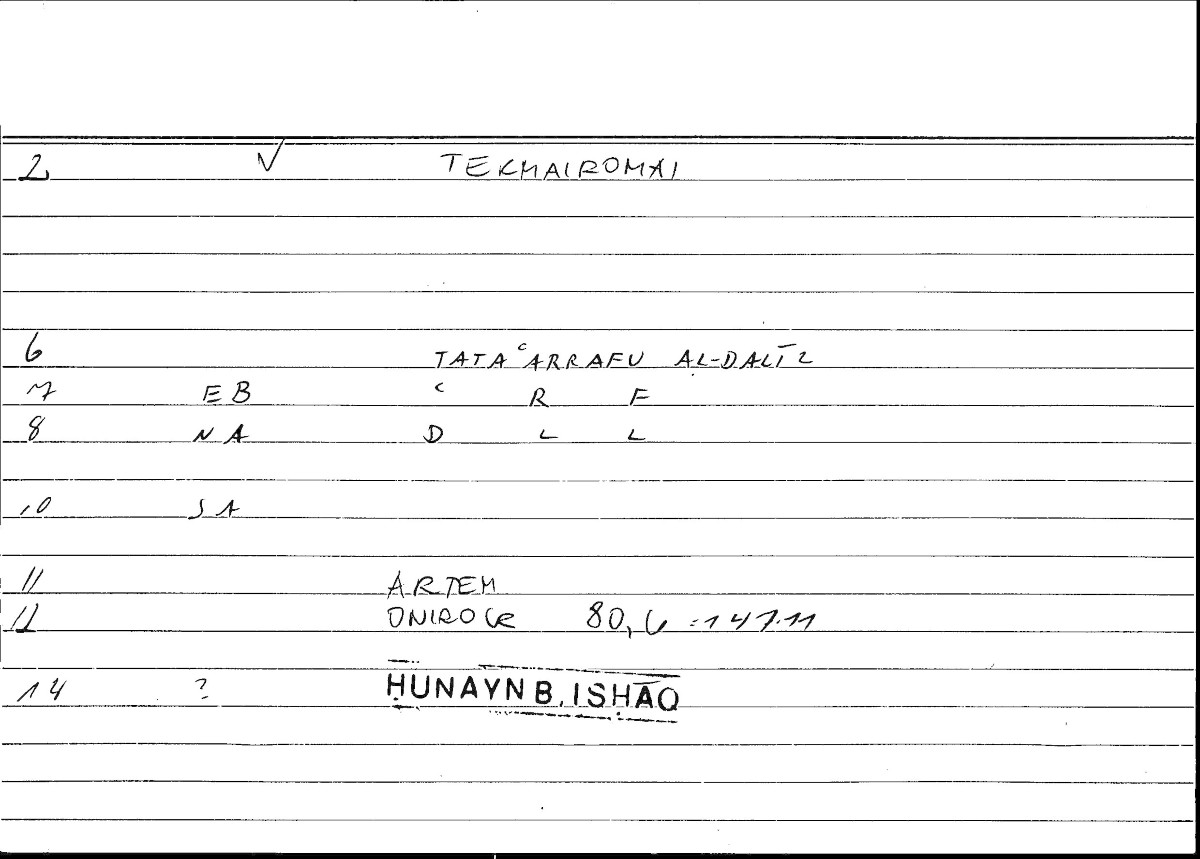 2 √ TEKMAIROMAI
6 TATAʿARRAFU AL-DALĪL
7 EB ʿ R F
8 NA D L L
10 SA
11 ARTEM
12 ONIROCR 80,6 = 147.11
14 ? ḤUNAYN B. ISḤĀQ